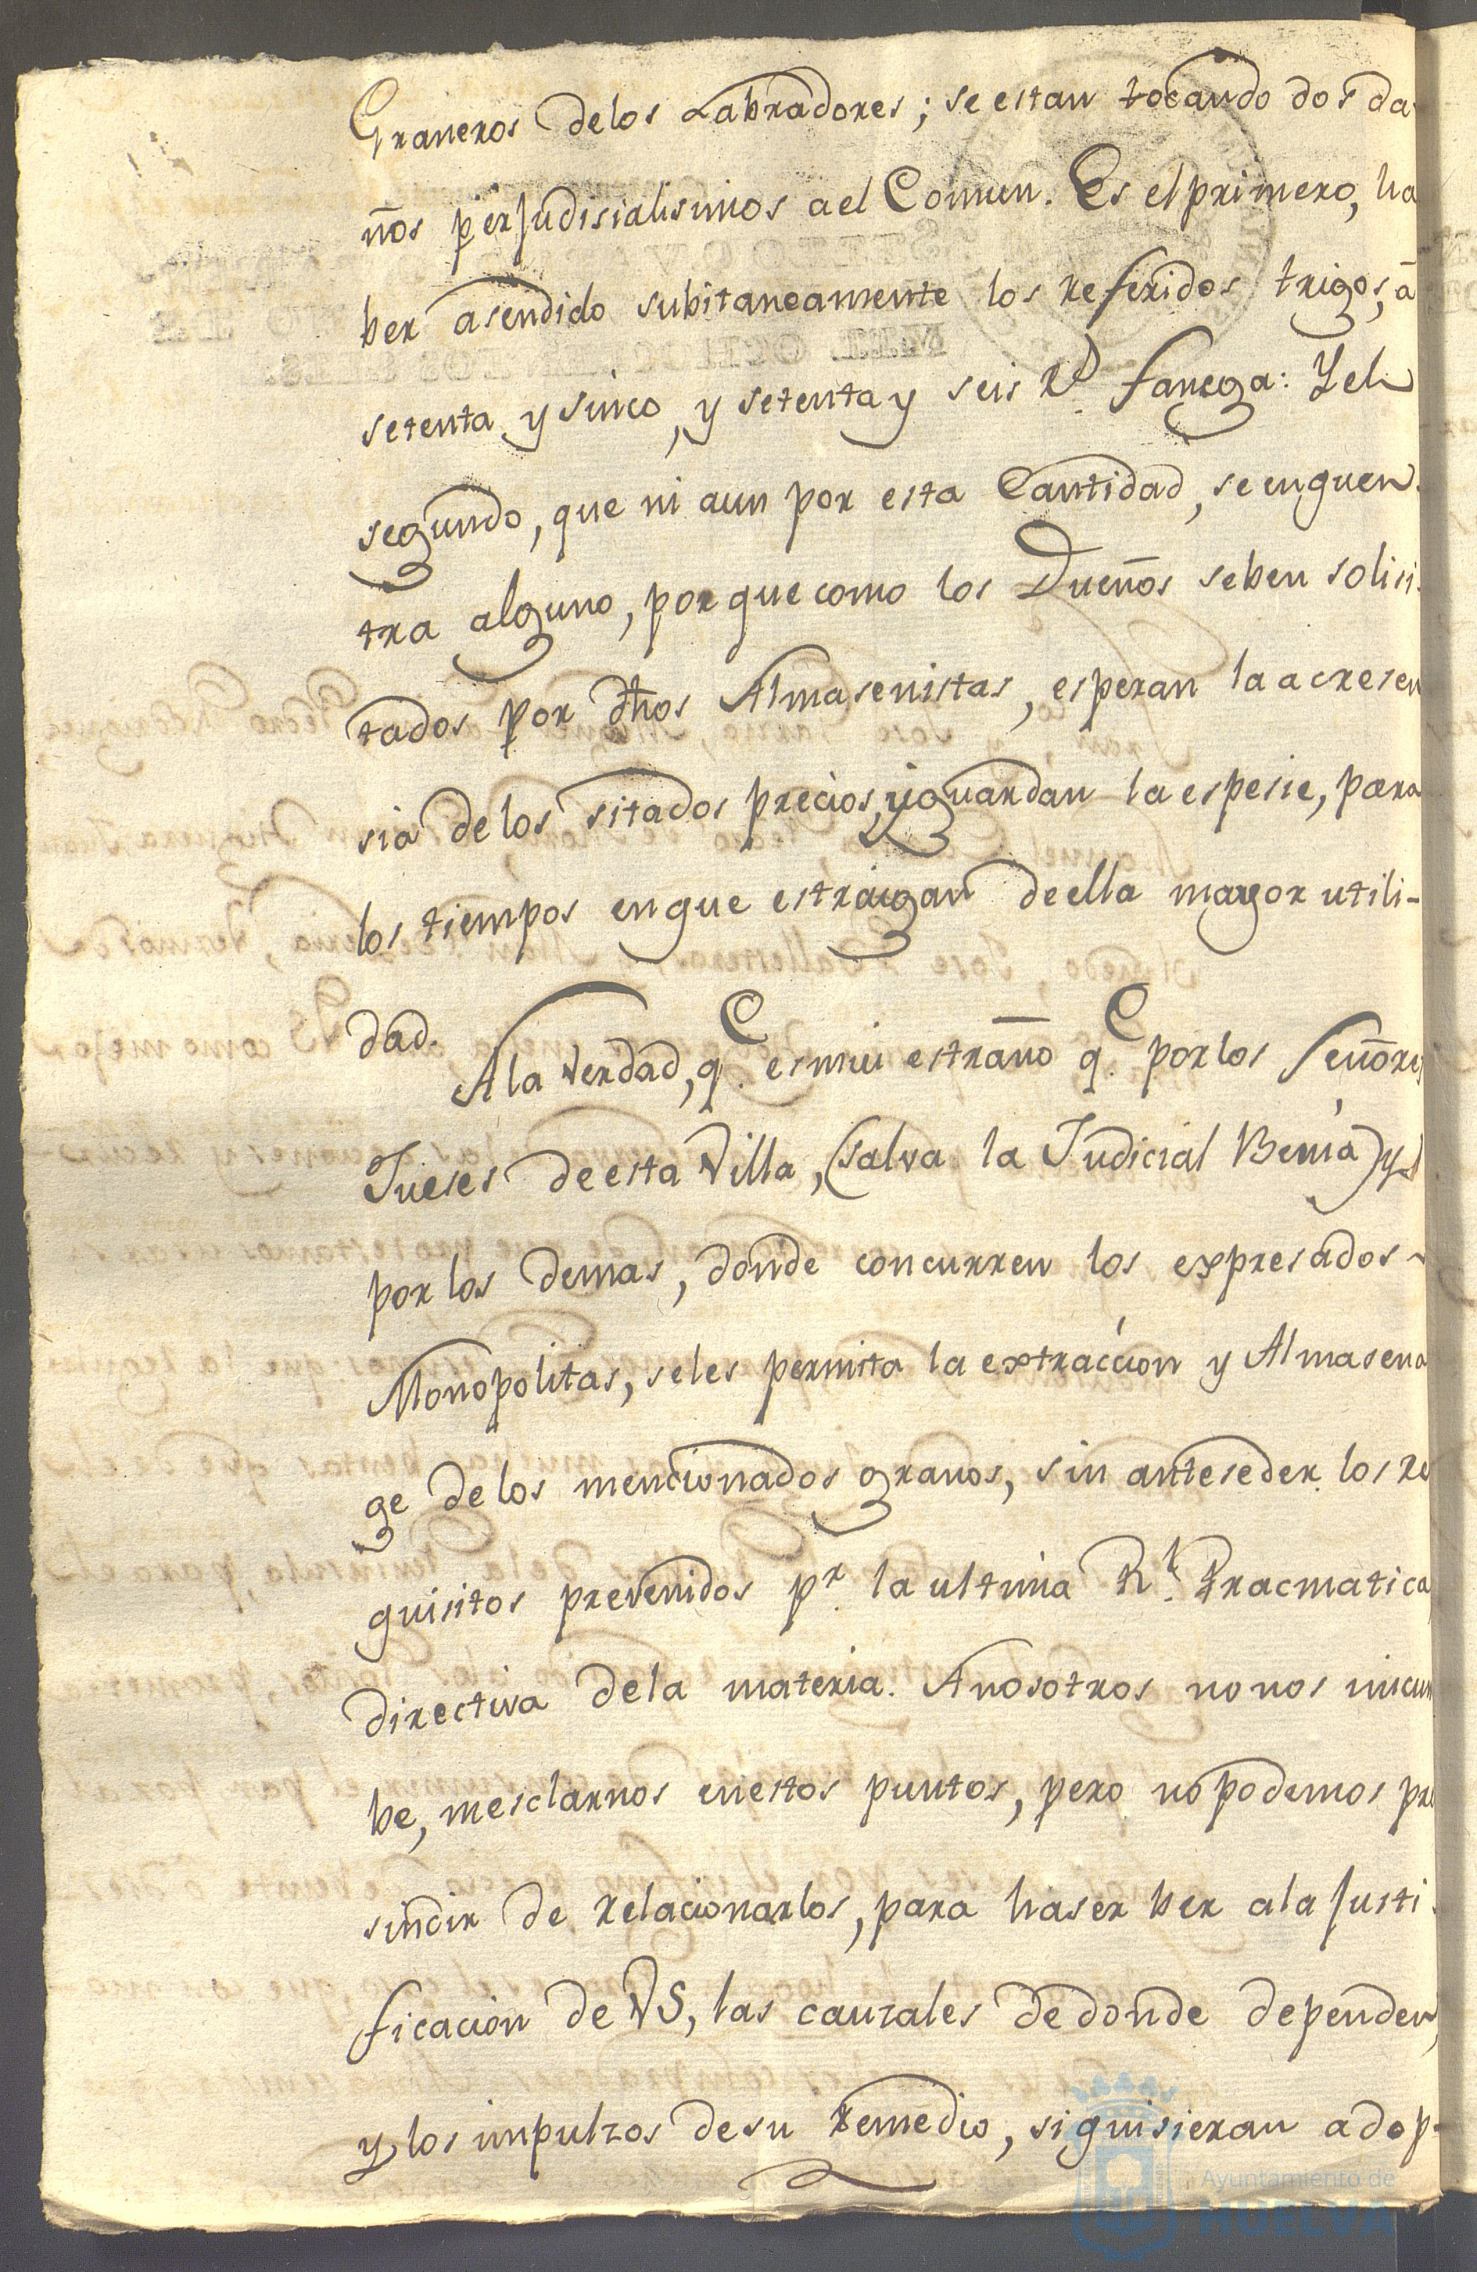 Graneros delos Labradores; se estan tocando dos da
ños perJudisialisimos a el Comun. Es el primero, ha
ber asendido subitaneamente los referidos trigos, á
setenta y sinco, y setenta y seis Rs. fanega: Y el
segundo, que ni aun por esta Cantidad, se enquen
tra alguno, por que como los Dueños se ben solisi
tados por dhos Almasenistas, esperan la acresen
sia de los sitados precios, y guardan la espesie, para
los tiempos en que estraigan de ella mayor utili-
dad.
A la verdad, qe. es mui estraño qe. por los Señores
Jueses de esta Villa, (salva la Judicial Benia) y
por los demas, donde concurren los expresados
Monopolitas, se les permita la extraccion y Almasena
ge de los mencionados granos, sin anteseder los re
quisitos prevenidos pr. la ultima Rl. Pracmatica
directiva dela materia. A nosotros no nos incum
be, mesclarnos en estos puntos, pero no podemos pre
sindir de relacionarlos, para haser ber a la Justi
ficacion de VS, las causales de donde dependen,
y los impulzos de su remedio, si quisieran adop-
Ayuntamiento de
HUELVA